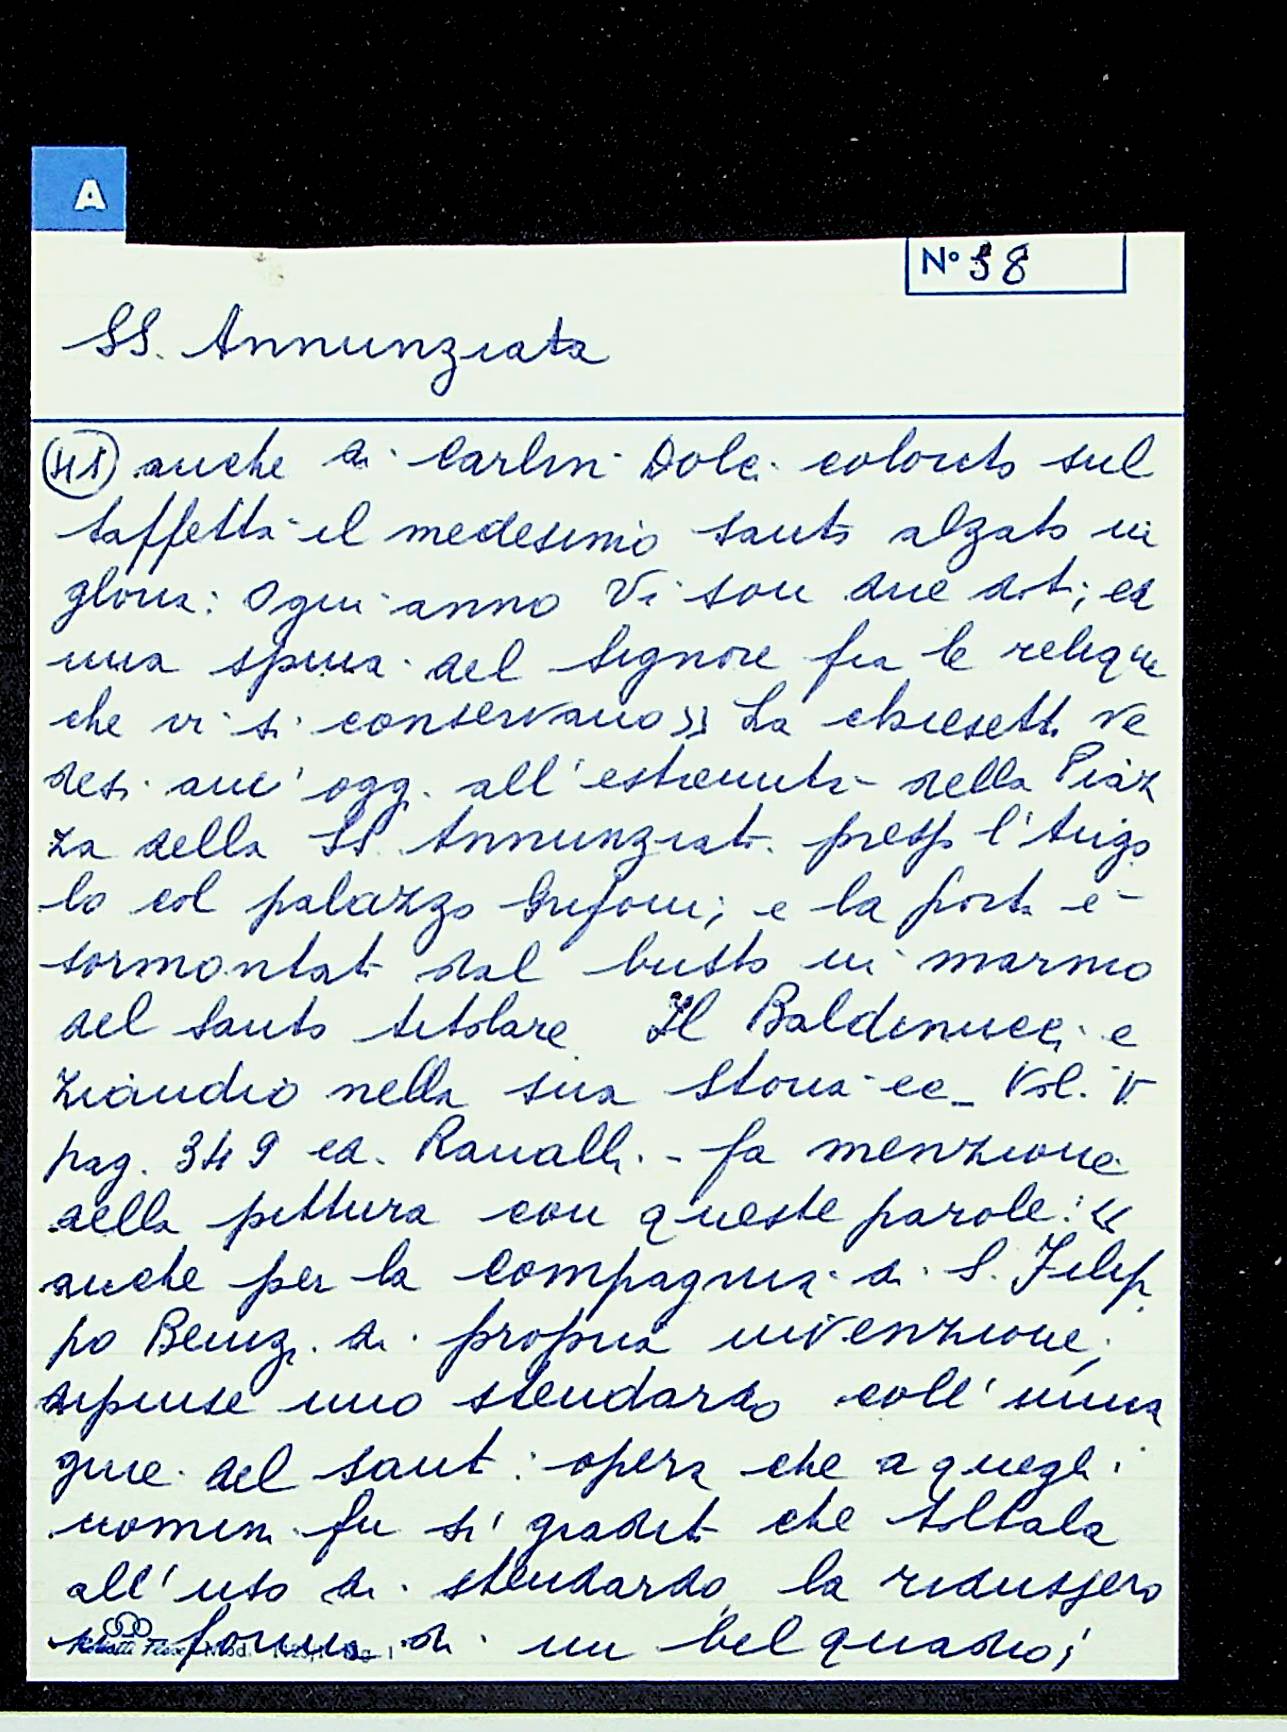 A
N° 38
SS. Annunziata
(41) anche di Carlin Dolci colorito sul
taffettà il medesimo santo alzato in
gloria: Ogni anno vi son due doti; ed
una spina del Signore fra le reliquie
che vi si conservano» La chiesetta ve
desi anc' oggi all' estremità della Piaz
za della SS. Annunziata presso l'Ango
lo col palazzo Grifoni; e la porta è
sormontata dal busto in marmo
del Santo titolare. Il Baldinucci e
ziandio nella sua Storia ec_ Vol. V.
pag. 349 ed. Ranalli - fa menzione
della pittura con queste parole: «
anche per la Compagnia di S. Filip
po Benizi di propria invenzione,
dipinse uno stendardo coll' imma
gine del santo: opera che a quegli
uomini fu sì gradita che toltala
all' uso di stendardo, la ridussero
in forma di un bel quadro;